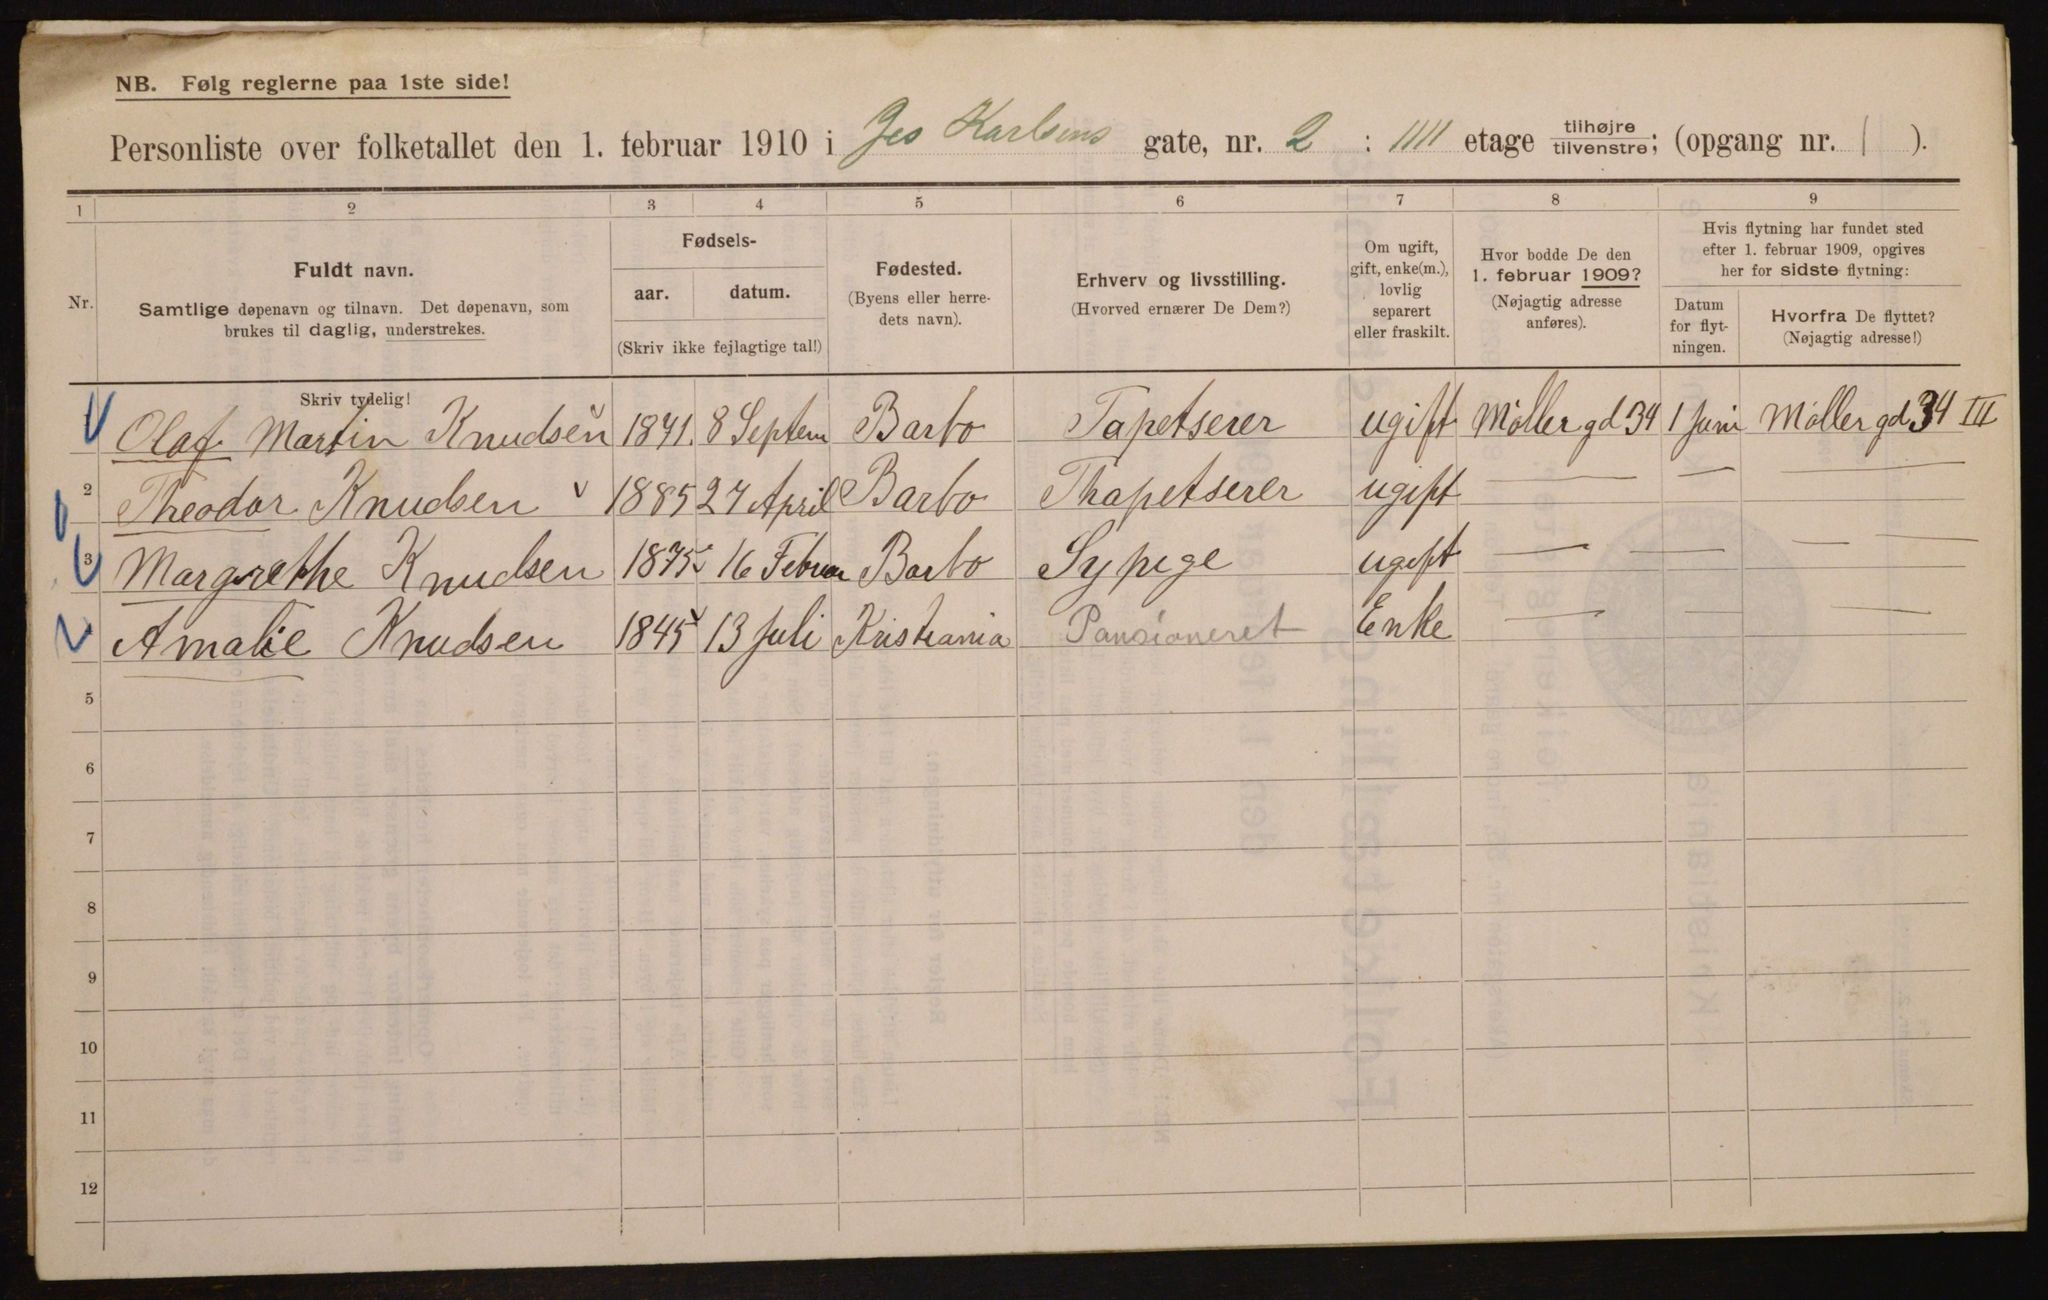 NB. Følg reglerne paa 1ste side!
Personliste over folketallet den 1. februar 1910 i Jes Karlsens gate, nr. 2 : IIII etage tilhøjre tilvenstre; (opgang nr. 1 ).
1 2 3 4 5 6 7 8 9
Nr.
Fuldt navn.
Samtlige døpenavn og tilnavn. Det døpenavn, som
brukes til daglig, understrekes.
Fødsels-
aar. datum.
(Skriv ikke fejlagtige tal!)
Fødested.
(Byens eller herre-
dets navn).
Erhverv og livsstilling.
(Hvorved ernærer De Dem?)
Om ugift,
gift, enke(m.),
lovlig
separert
eller fraskilt.
Hvor bodde De den
1. februar 1909?
(Nøjagtig adresse
anføres).
Hvis flytning har fundet sted
efter 1. februar 1909, opgives
her for sidste flytning:
Datum
for flyt-
ningen.
Hvorfra De flyttet?
(Nøjagtig adresse!)
Skriv tydelig!
Olaf Martin Knudsen 1841. 8 Septem Barbo Tapetserer ugift Møller gd 34 1 Juni Møller gd 34 III
2 Theodor Knudsen v 1885 27 April Barbo Thapetserer ugift — — —
3 Margrethe Knudsen 1875 16 Februar Barbo Sypige ugift — — — —
Amalie Knudsen 1845 13 Juli Kristiania Pansioneret Enke — — —
5
6
7
8
9
10
11
12